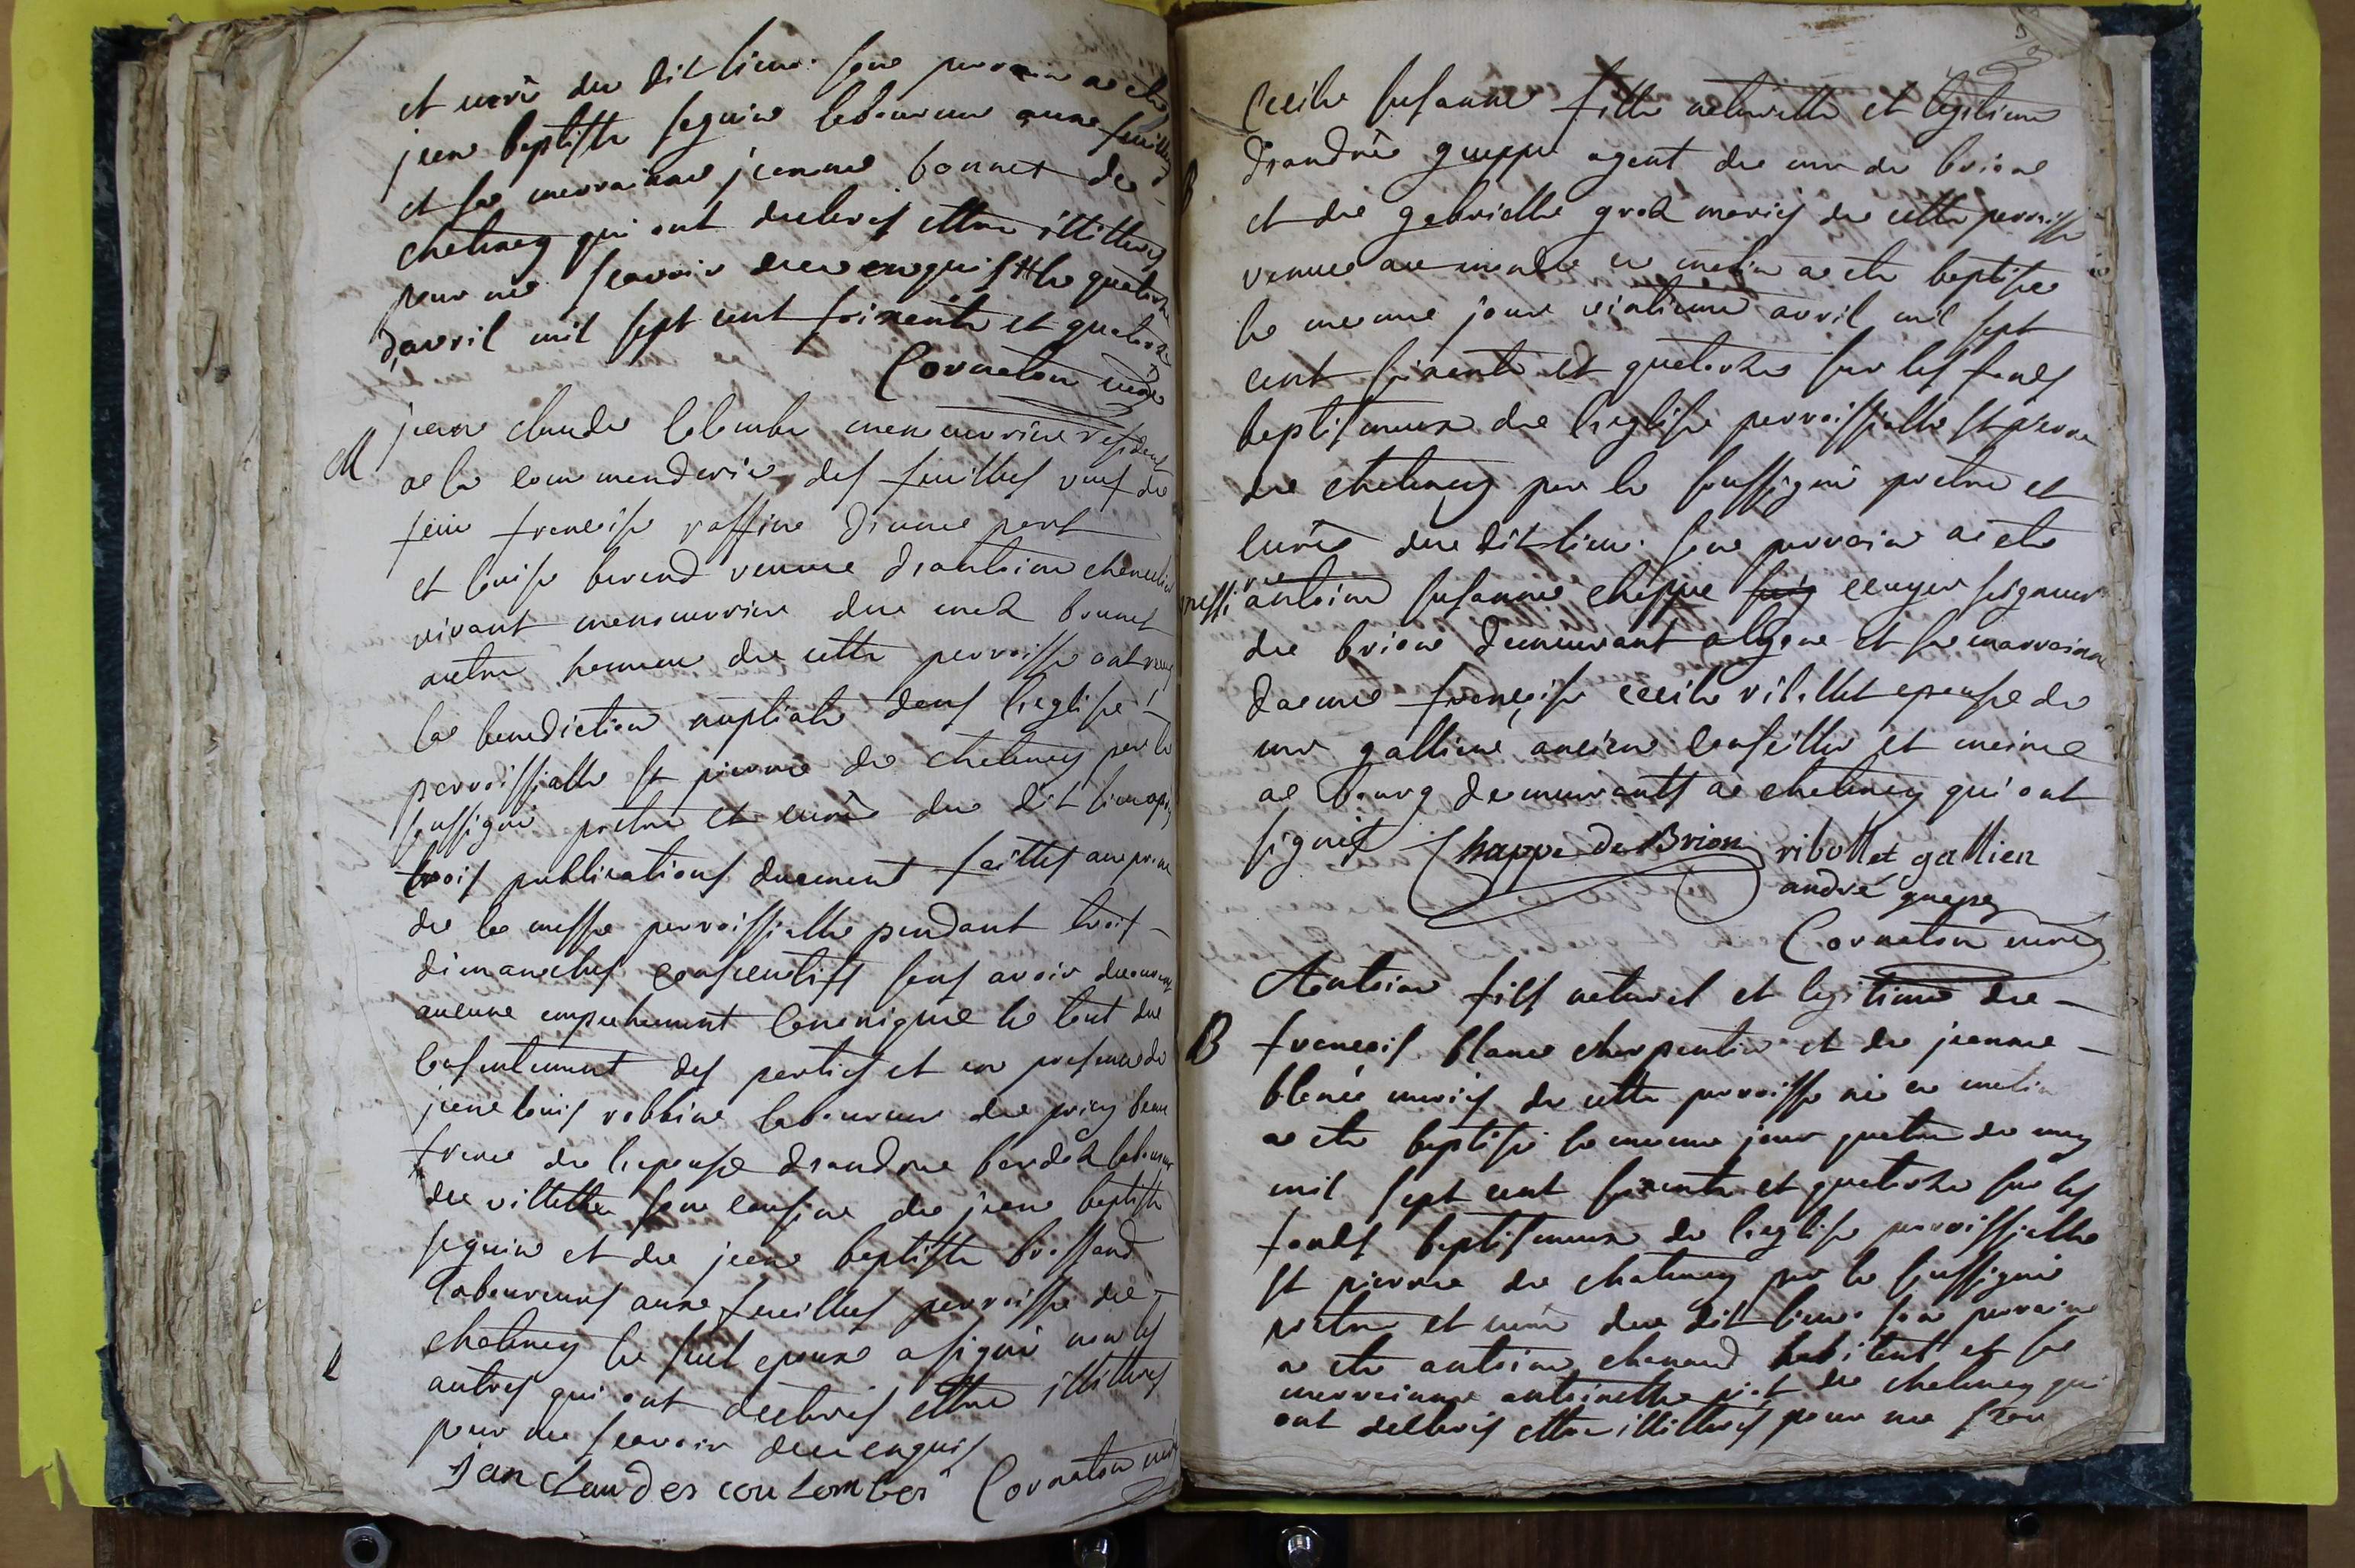 et curé du dit lieu. son parrain a été
jean baptiste seguin laboureur aux feuillees
et sa marrainne jeanne bonnet de
chatenay qui ont declarés ettre illitterés
pour ne scavoir duement enquis le quatorze
d'avril mil sept cent soixante et quatorze
Cornaton curé
M
jean claude colombe manoeuvrier resident
a la commanderie des feuillees veuf de
feue francoise raffin d'une part
et louise berard veuve d'antoine
vivant manoeuvrier du mas bonnet
autre hameau de cette parroisse ont reçu
la benediction nuptiale dans l'eglise
parroissialle st pierre de chatenay par le
soussigné pretre et curé du dit lieu apres
trois publications duement faittes au prone
de la messe parroissialle pendant trois
dimanches consecutifs sans avoir decouvert
aucune empechement canonique le tout du
consentement des parties et en presence de
jean louis robbin laboureur de priay beau
frere de l'epouse d'andre bardet laboureur
de villette son cousin de jean baptiste
seguin et de jean baptiste brossard
laboureurs aux feuillees parroisse de
chatenay le seul epoux a signé non les
autres qui ont declarés ettre illitterés
pour ne scavoir duement enquis
Jan claudes coulombes Cornaton curé
Cecile susanne fille naturelle et legitime
B
d'andré gueppe agent de mr de brion
et de gabrielle groz mariés de cette parroisse
venue au monde ce matin a été baptisée
le meme jour vintieme avril mil sept
cent soixante et quatorze sur les fonds
baptismaux de l'eglise parroissialle st pierre
de chatenay par le soussigné pretre et
curé du dit lieu. son parrain a été
messire antoine susanne chappe ecuyer seigneur
de brion demeurant a lyon et sa marrainne
dame françoise cecile ribollet epouse de
mr gallien ancien conseiller et maire
a bourg demeurants a chatenay qui ont
signés Chappe de Brion ribollet gallien
andré gueppe
Cornaton curé
Antoine fils naturel et legitime de
B
francois blanc charpentier et de jeanne
blanc mariés de cette parroisse né ce matin
a été baptisé le meme jour quatre de may
mil sept cent soixante et quatorze sur les
fonds baptismaux de l'eglise parroissialle
st pierre de chatenay par le soussigné
pretre et curé du dit lieu. son parrain
a été antoine chanard habitant et sa
marrainne antoinette piat de chatenay qui
ont declarés ettre illitterés pour ne scavoir